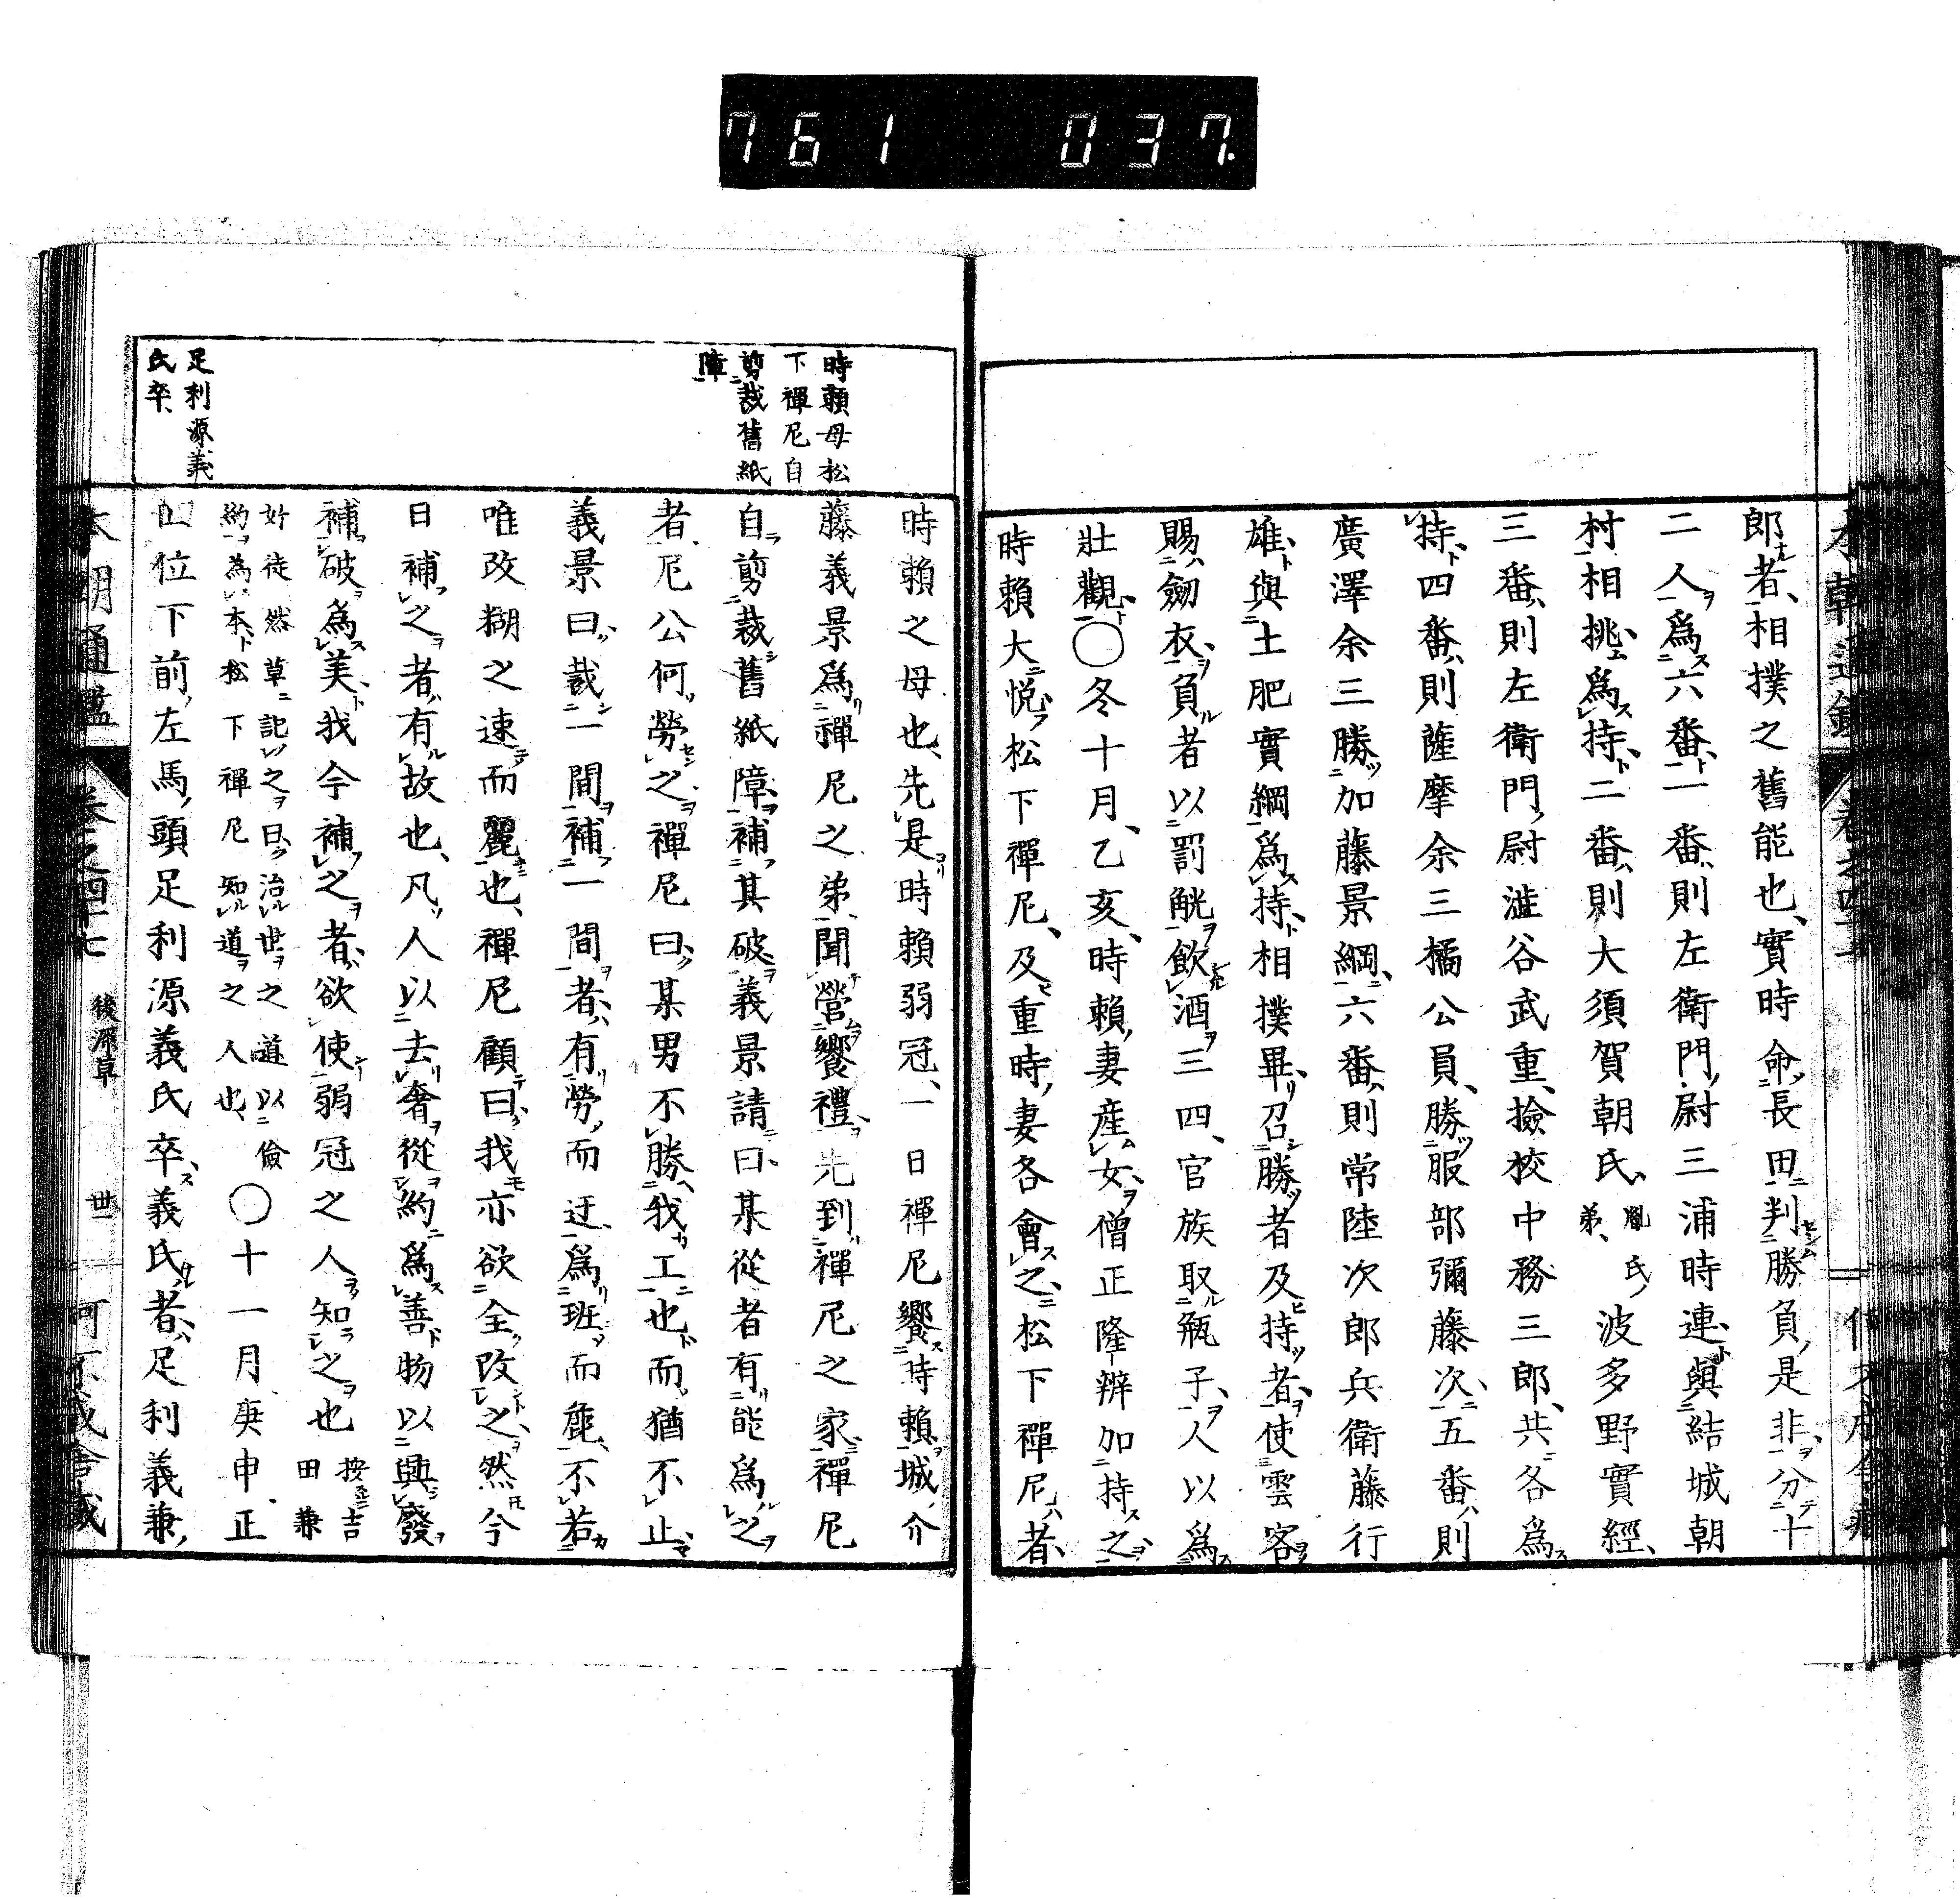 761 037.
郎者、相撲之舊能也、實時命長田判勝負、是非分十
二人爲六番、一番則左衛門尉三浦時連與結城朝
村相挑爲持、二番則大須賀朝氏、胤氏弟、波多野實經、
三番則左衛門尉澁谷武重、撿挍中務三郎、共各爲
持、四番則薩摩余三橘公員、勝服部彌藤次、五番則
廣澤余三勝加藤景綱、六番則常陸次郎兵衛藤行
雄與土肥實綱爲持、相撲畢、召勝者及持者使雲客
賜劒衣、負者以罰觥飲酒三四、官族取瓶子、人以爲
壯觀、〇冬十月、乙亥、時賴妻産女、僧正隆辨加持之、
時賴大悦、松下禪尼、及重時妻各會之、松下禪尼者、
時賴母松
下禪尼自
剪裁舊紙
障
足利源義
氏卒、
時賴之母也、先是時賴弱冠、一日禪尼饗時賴、城介
藤義景爲禪尼之弟、聞營饗禮、先到禪尼之家、禪尼
自剪裁舊紙障、補其破、義景請曰、某從者有能爲之
者、尼公何勞之、禪尼曰、某男不勝我工也、而猶不止、
義景曰、裁一間補一間者、有勞而迂、爲班而麁、不若
唯改糊之速而麗也、禪尼顧曰、我亦欲全改之、然今
日補之者、有故也、凡人以去奢從約爲善、物以興廢
補破爲美、我今補之者、欲使弱冠之人知之也 按吉田兼
好徒然草記之曰、治世之道以儉
約爲本、松下禪尼知道之人也、〇十一月庚申正
四位下前左馬頭足利源義氏卒、義氏者、足利義兼
本朝通鑑 卷之四十七 後深草 丗一